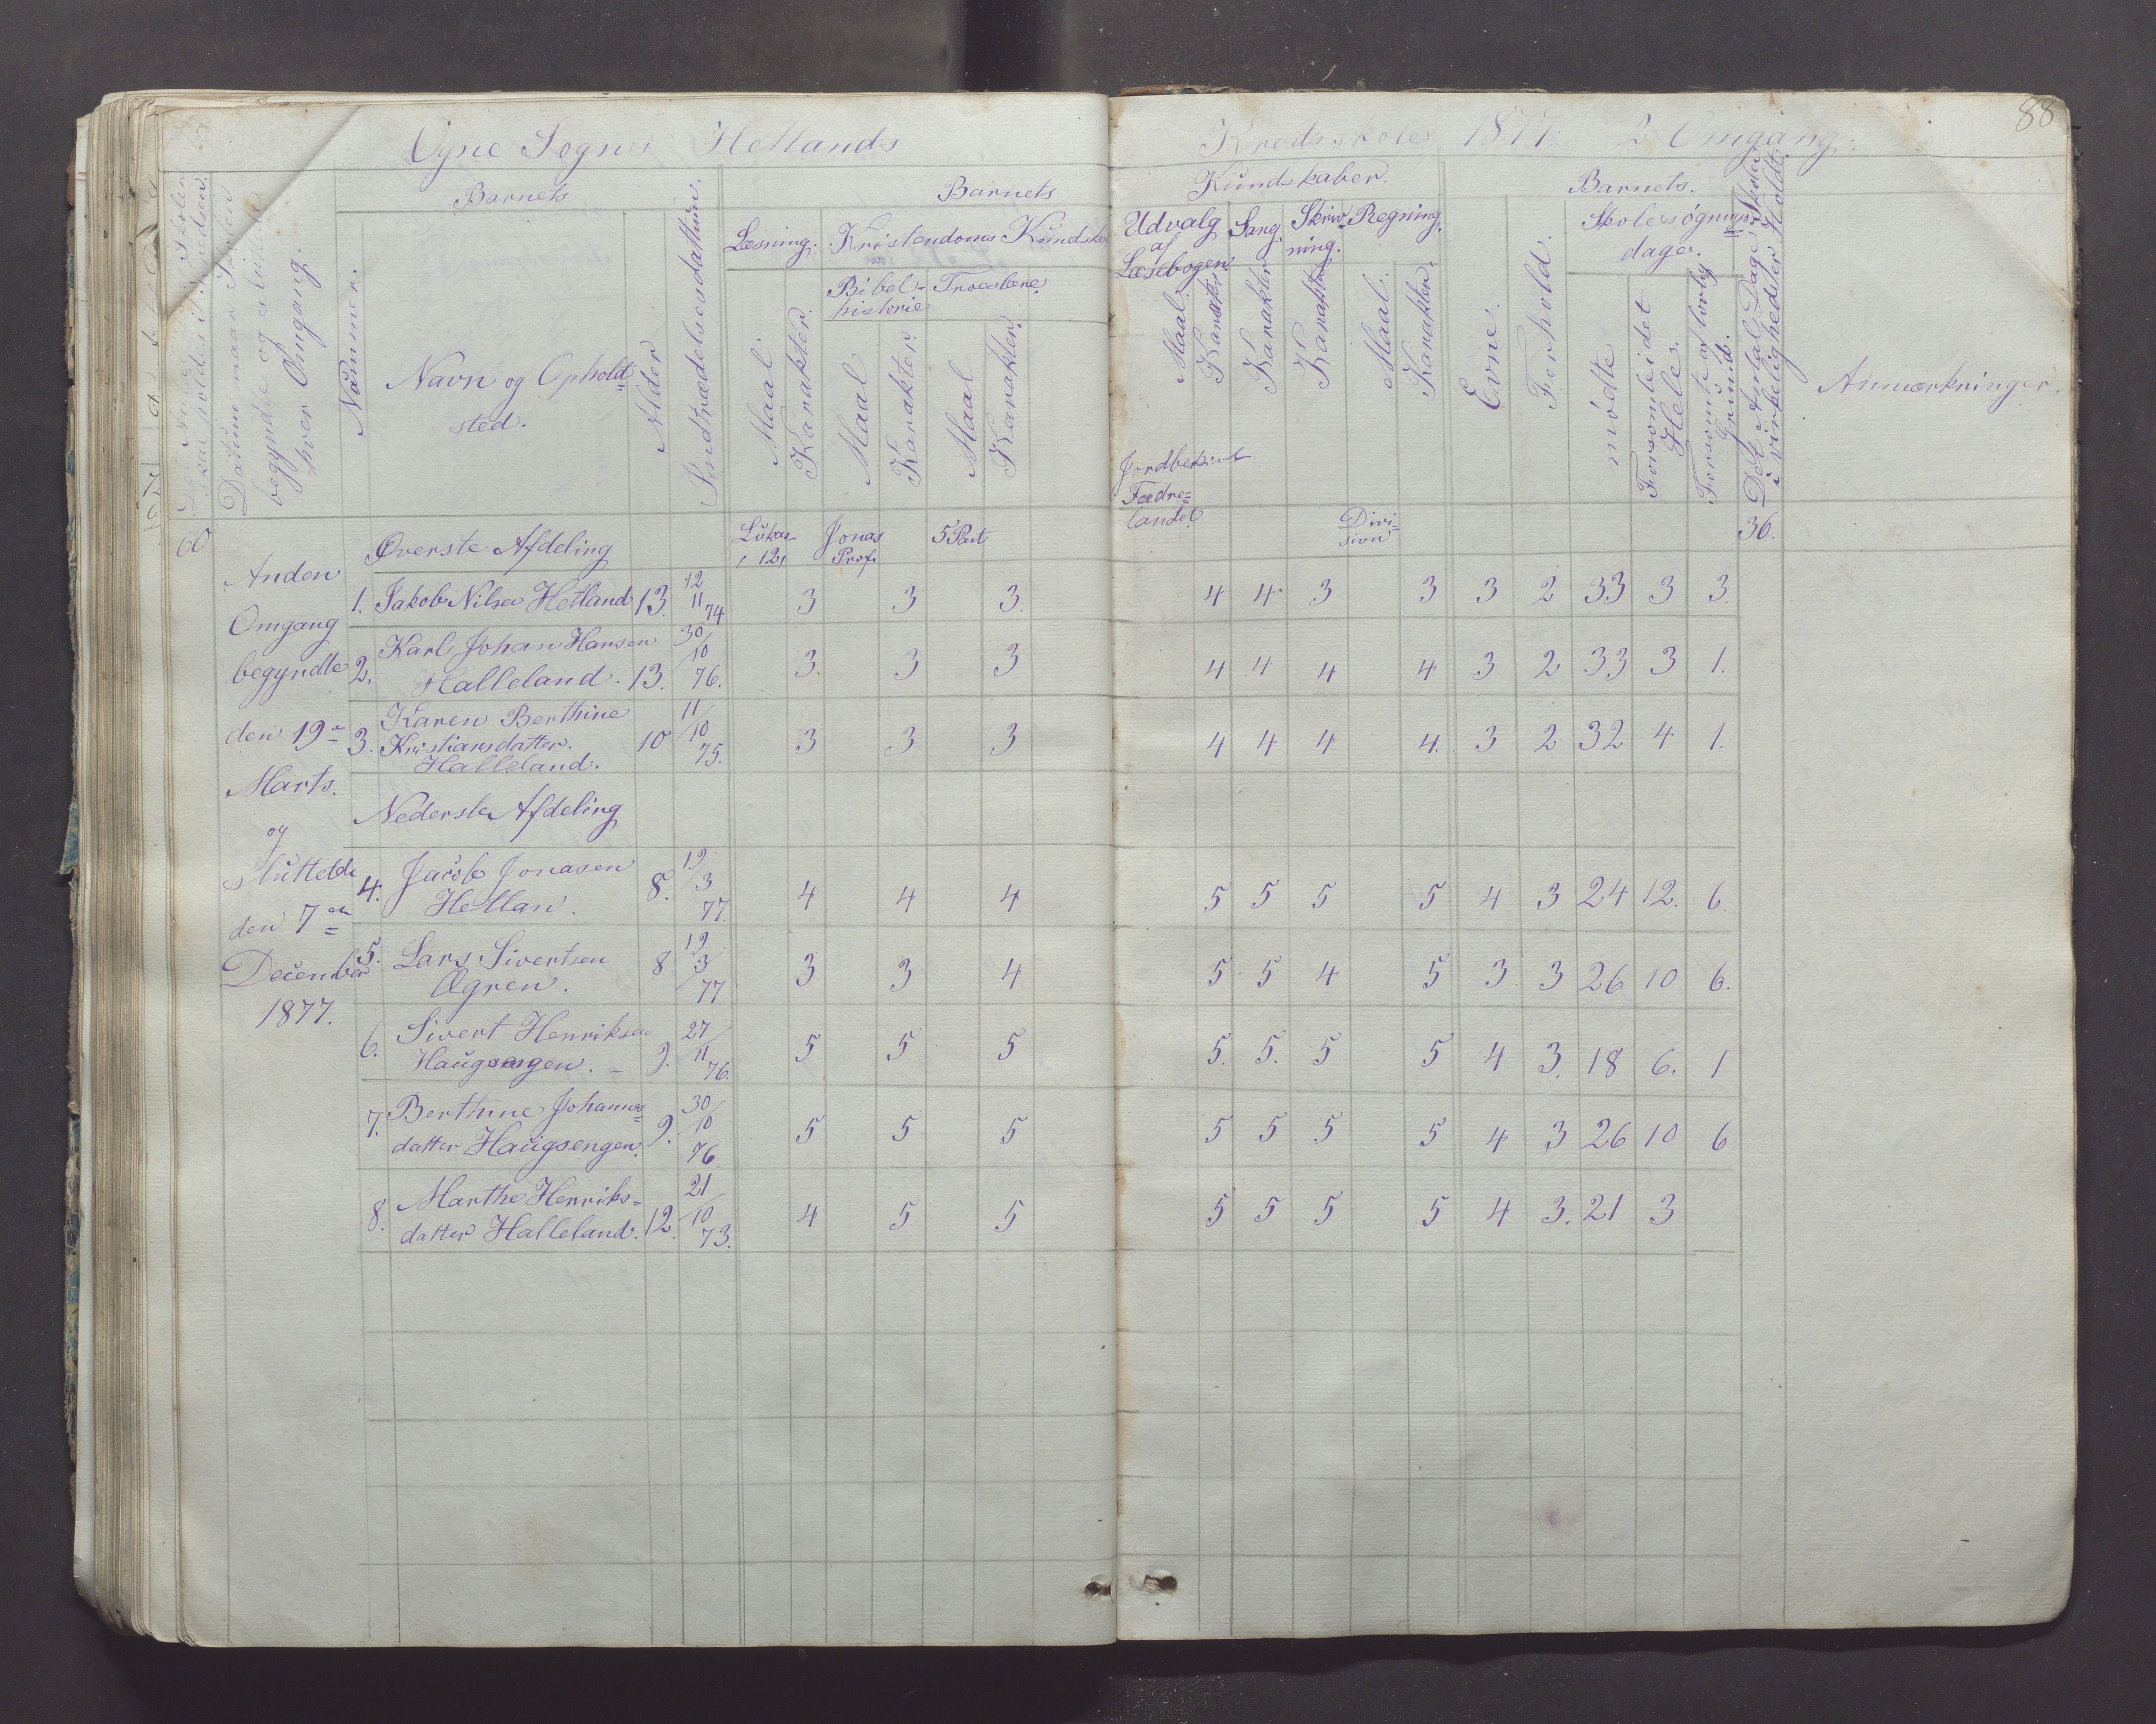 Ogne Sogns Hetlands Kredsskole 1877. 2 Omgang.
88
Barnets
Barnets Kundskaber.
Barnets.
Skolen
Datum naar Skolen
begyndte og sluttede
hver Omgang.
Nummer.
Navn og Opholds=
sted.
Alder
Indtrædelsesdatum.
Læsning.
Maal.
Karakter.
Kristendoms Kundska
Bibel-
historie
Maal
Karakter.
Troeslære.
Maal
Karakter.
Udvalg
af
Læsebogen
Maal.
Karakter
Sang
Karakter
Skriv=
ning.
Karakter
Regning.
Maal.
Karakter.
Evne.
Forhold.
Skolesøgnings=
dage.
mødte
Forsømte i det
Hele.
Forsømte af lovlig
Grund.
Det Antal Dage Skolen
i virkeligheden Holdt.
Anmærkninger.
60
Øverste Afdeling
Lukas
12
Jonas
Prof.
5 Part
Jordbeskriv
Fædre=
landet
Divi=
sion
36.
Anden
Omgang
begyndte
den 19de
Marts.
og
sluttede
den 7de
December
1877.
1. Jakob Nilsen Hetland 13. 12/11 74 3 3 3. 4 4 3 3 3 2 33 3 3.
2. Karl Johan Hansen
Halleland. 13. 30/10 76. 3. 3 3 4 4 4 4 3 2 33 3 1.
3. Karen Berthine
Kristiansdatter.
Halleland. 10 11/10 75. 3 3 3 4 4 4 4. 3 2 32 4 1.
Nederste Afdeling
4. Jacob Jonasen
Hetlan. 8. 19/3 77. 4 4 4 5 5 5 5 4 3 24 12. 6.
5. Lars Sivertsen
Ögren. 8 19/3 77 3 3 4 5 5 4 5 3 3 26 10 6.
6. Sivert Henriksen
Haugsengen. 9. 27/11 76. 5 5 5 5. 5. 5 5 4 3. 18 6. 1
7. Berthine Johannes=
datter Haugsengen. 9. 30/10 76. 5 5 5 5 5 5 5 4 3 26 10 6
8. Marthe Henriks=
datter Halleland. 12. 21/10 73. 4 5 5 5 5 5 5 4 3. 21 3